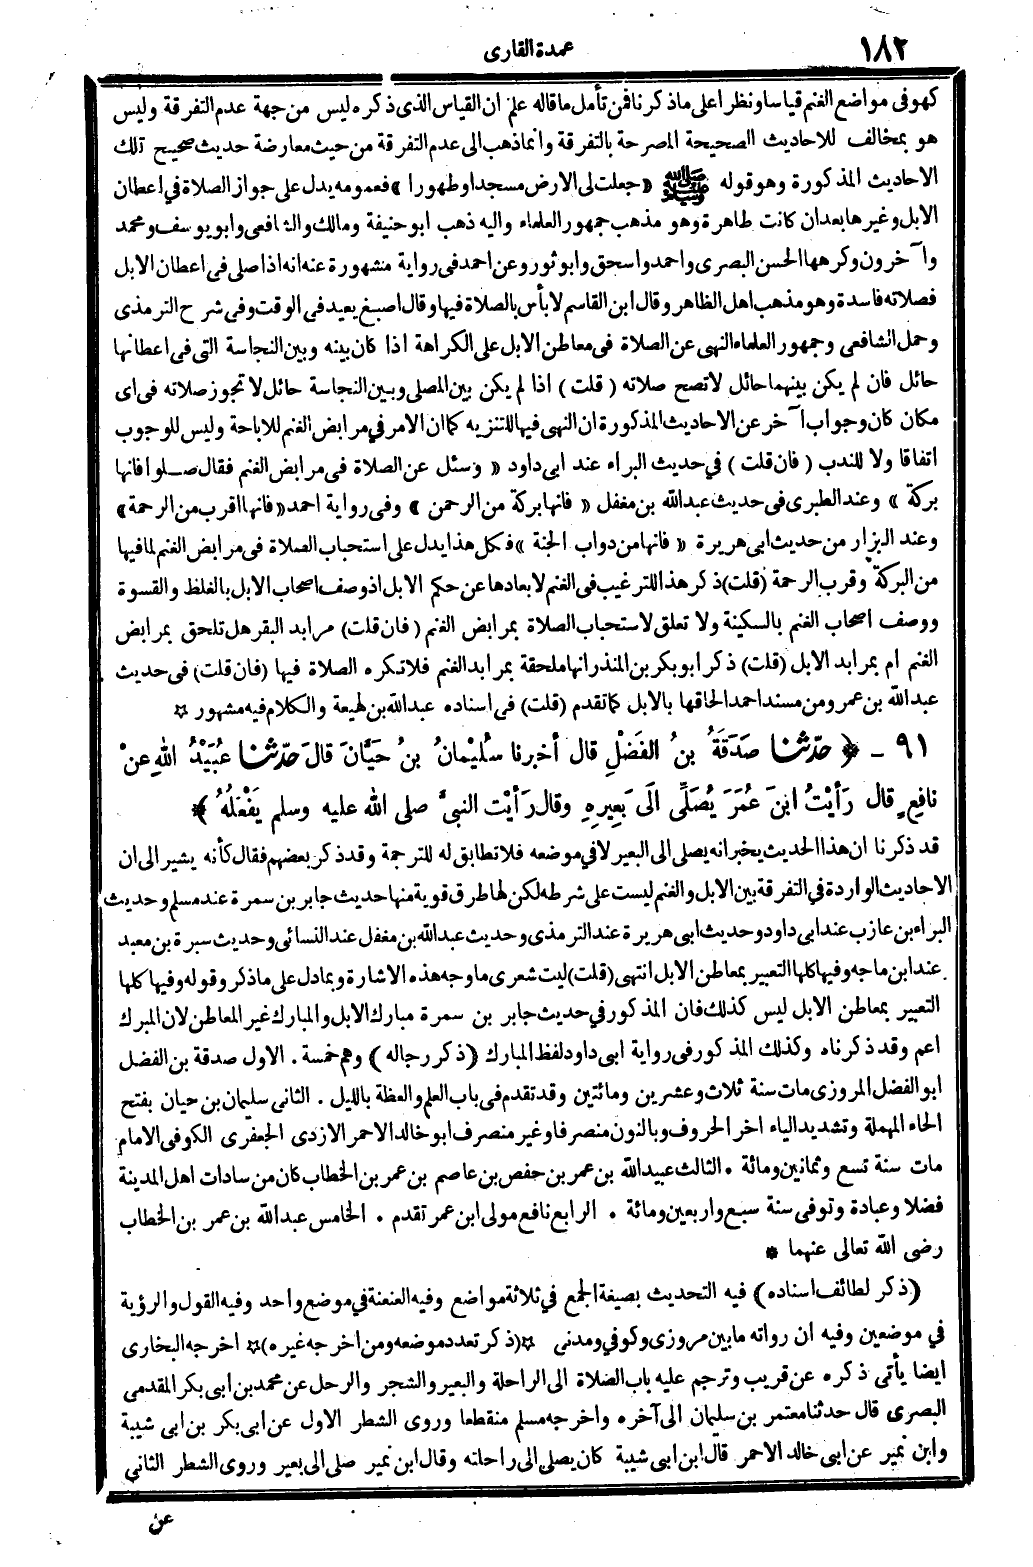 ١٨٢
عمدة القارى
كهو فى مواضع الغنم قياسا ونظرا على ماذكرنا فمن تأمل ما قاله علم ان القياس الذى ذكره ليس من جهة عدم التفرقة وليس
هو بمخالف للاحاديث الصحيحة المصرحة بالتفرقة وانما ذهب الى عدم التفرقة من حيث معارضة حديث صحيح تلك
الاحاديث المذكورة وهو قوله ﷺ «جعلت لى الارض مسجدا وطهورا» فعمومه يدل على جواز الصلاة في اعطان
الابل وغيرها بعد ان كانت طاهرة وهو مذهب جمهور العلماء واليه ذهب ابو حنيفة ومالك والشافعى وابو يوسف ومحمد
وآخرون وكرهها الحسن البصرى واحمد واسحق وابو ثور وعن احمد فى رواية مشهورة عنه انه اذا صلى فى اعطان الابل
فصلاته فاسدة وهو مذهب اهل الظاهر وقال ابن القاسم لا بأس بالصلاة فيها وقال اصبغ يعيد فى الوقت وفى شرح الترمذى
وحمل الشافعى وجمهور العلماء النهى عن الصلاة فى معاطن الابل على الكراهة اذا كان بينه وبين النجاسة التى فى اعطانها
حائل فان لم يكن بينهما حائل لا تصح صلاته (قلت) اذا لم يكن بين المصلى وبين النجاسة حائل لا تجوز صلاته فى اى
مكان كان وجواب آخر عن الاحاديث المذكورة ان النهى فيها للتنزيه كما ان الامر في مرابض الغنم للاباحة وليس للوجوب
اتفاقا ولا للندب (فان قلت) في حديث البراء عند ابى داود «وسئل عن الصلاة فى مرابض الغنم فقال صلوا فانها
بركة» وعند الطبرى فى حديث عبدالله بن مغفل «فانها بركة من الرحمن» وفى رواية احمد «فانها اقرب من الرحمة»
وعند البزار من حديث ابى هريرة «فانها من دواب الجنة» فكل هذا يدل على استحباب الصلاة فى مرابض الغنم لما فيها
من البركة وقرب الرحمة (قلت) ذكر هذا للترغيب فى الغنم لابعادها عن حكم الابل اذ وصف اصحاب الابل بالغلظ والقسوة
ووصف اصحاب الغنم بالسكينة ولا تعلق لاستحباب الصلاة بمرابض الغنم (فان قلت) مرابد البقر هل تلحق بمرابض
الغنم ام بمرابد الابل (قلت) ذكر ابو بكر بن المنذر انها ملحقة بمرابد الغنم فلا تكره الصلاة فيها (فان قلت) فى حديث
عبدالله بن عمرو من مسند احمد الحاقها بالابل كما تقدم (قلت) فى اسناده عبدالله بن لهيعة والكلام فيه مشهور ☆
٩١ - ﴿ حَدَّثنا صَدَقَةُ بنُ الفَضْلِ قال أخبرنا سُلَيْمانُ بنُ حَيَّانَ قالَ حَدّثنا عُبَيْدُ اللهِ عنْ
نافِعٍ قال رَأَيْتُ ابنَ عُمَرَ يُصَلِّى الَى بَعِيرِهِ وقال رَأَيْت النبىَّ صلى الله عليه وسلم يَفْعَلُهُ ﴾
قد ذكرنا ان هذا الحديث يخبر انه يصلى الى البعير لا في موضعه فلا تطابق له للترجمة وقد ذكر بعضهم فقال كأنه يشير الى ان
الاحاديث الواردة في التفرقة بين الابل والغنم ليست على شرطه لكن لها طرق قوية منها حديث جابر بن سمرة عند مسلم وحديث
البراء بن عازب عند ابى داود وحديث ابى هريرة عند الترمذى وحديث عبدالله بن مغفل عند النسائى وحديث سبرة بن معبد
عند ابن ماجه وفيها كلها التعبير بمعاطن الابل انتهى (قلت) ليت شعرى ما وجه هذه الاشارة وبما دل على ماذكر وقوله وفيها كلها
التعبير بمعاطن الابل ليس كذلك فان المذكور في حديث جابر بن سمرة مبارك الابل والمبارك غير المعاطن لان المبرك
اعم وقد ذكرناه وكذلك المذكور فى رواية ابى داود لفظ المبارك (ذكر رجاله) وهم خمسة. الاول صدقة بن الفضل
ابو الفضل المروزى مات سنة ثلاث وعشرين ومائتين وقد تقدم فى باب العلم والعظة بالليل. الثانى سليمان بن حيان بفتح
الحاء المهملة وتشديد الياء اخر الحروف وبالنون منصرفا وغير منصرف ابو خالد الاحمر الازدى الجعفرى الكوفى الامام
مات سنة تسع وثمانين ومائة. الثالث عبيدالله بن عمر بن حفص بن عاصم بن عمر بن الخطاب كان من سادات اهل المدينة
فضلا وعبادة وتوفى سنة سبع واربعين ومائة. الرابع نافع مولى ابن عمر تقدم. الخامس عبدالله بن عمر بن الخطاب
رضى الله تعالى عنهما *
(ذكر لطائف اسناده) فيه التحديث بصيغة الجمع في ثلاثة مواضع وفيه العنعنة في موضع واحد وفيه القول والرؤية
في موضعين وفيه ان رواته مابين مروزى وكوفي ومدنى ☆ (ذكر تعدد موضعه ومن اخرجه غيره) ☆ اخرجه البخارى
ايضا يأتى ذكره عن قريب وترجم عليه باب الصلاة الى الراحلة والبعير والشجر والرحل عن محمد بن ابى بكر المقدمى
البصرى قال حدثنا معتمر بن سلمان الى آخره واخرجه مسلم منقطعا وروى الشطر الاول عن ابى بكر بن ابى شيبة
وابن نمير عن ابى خالد الاحمر قال ابن ابى شيبة كان يصلى الى راحلته وقال ابن نمير صلى الى بعير وروى الشطر الثانى
عن